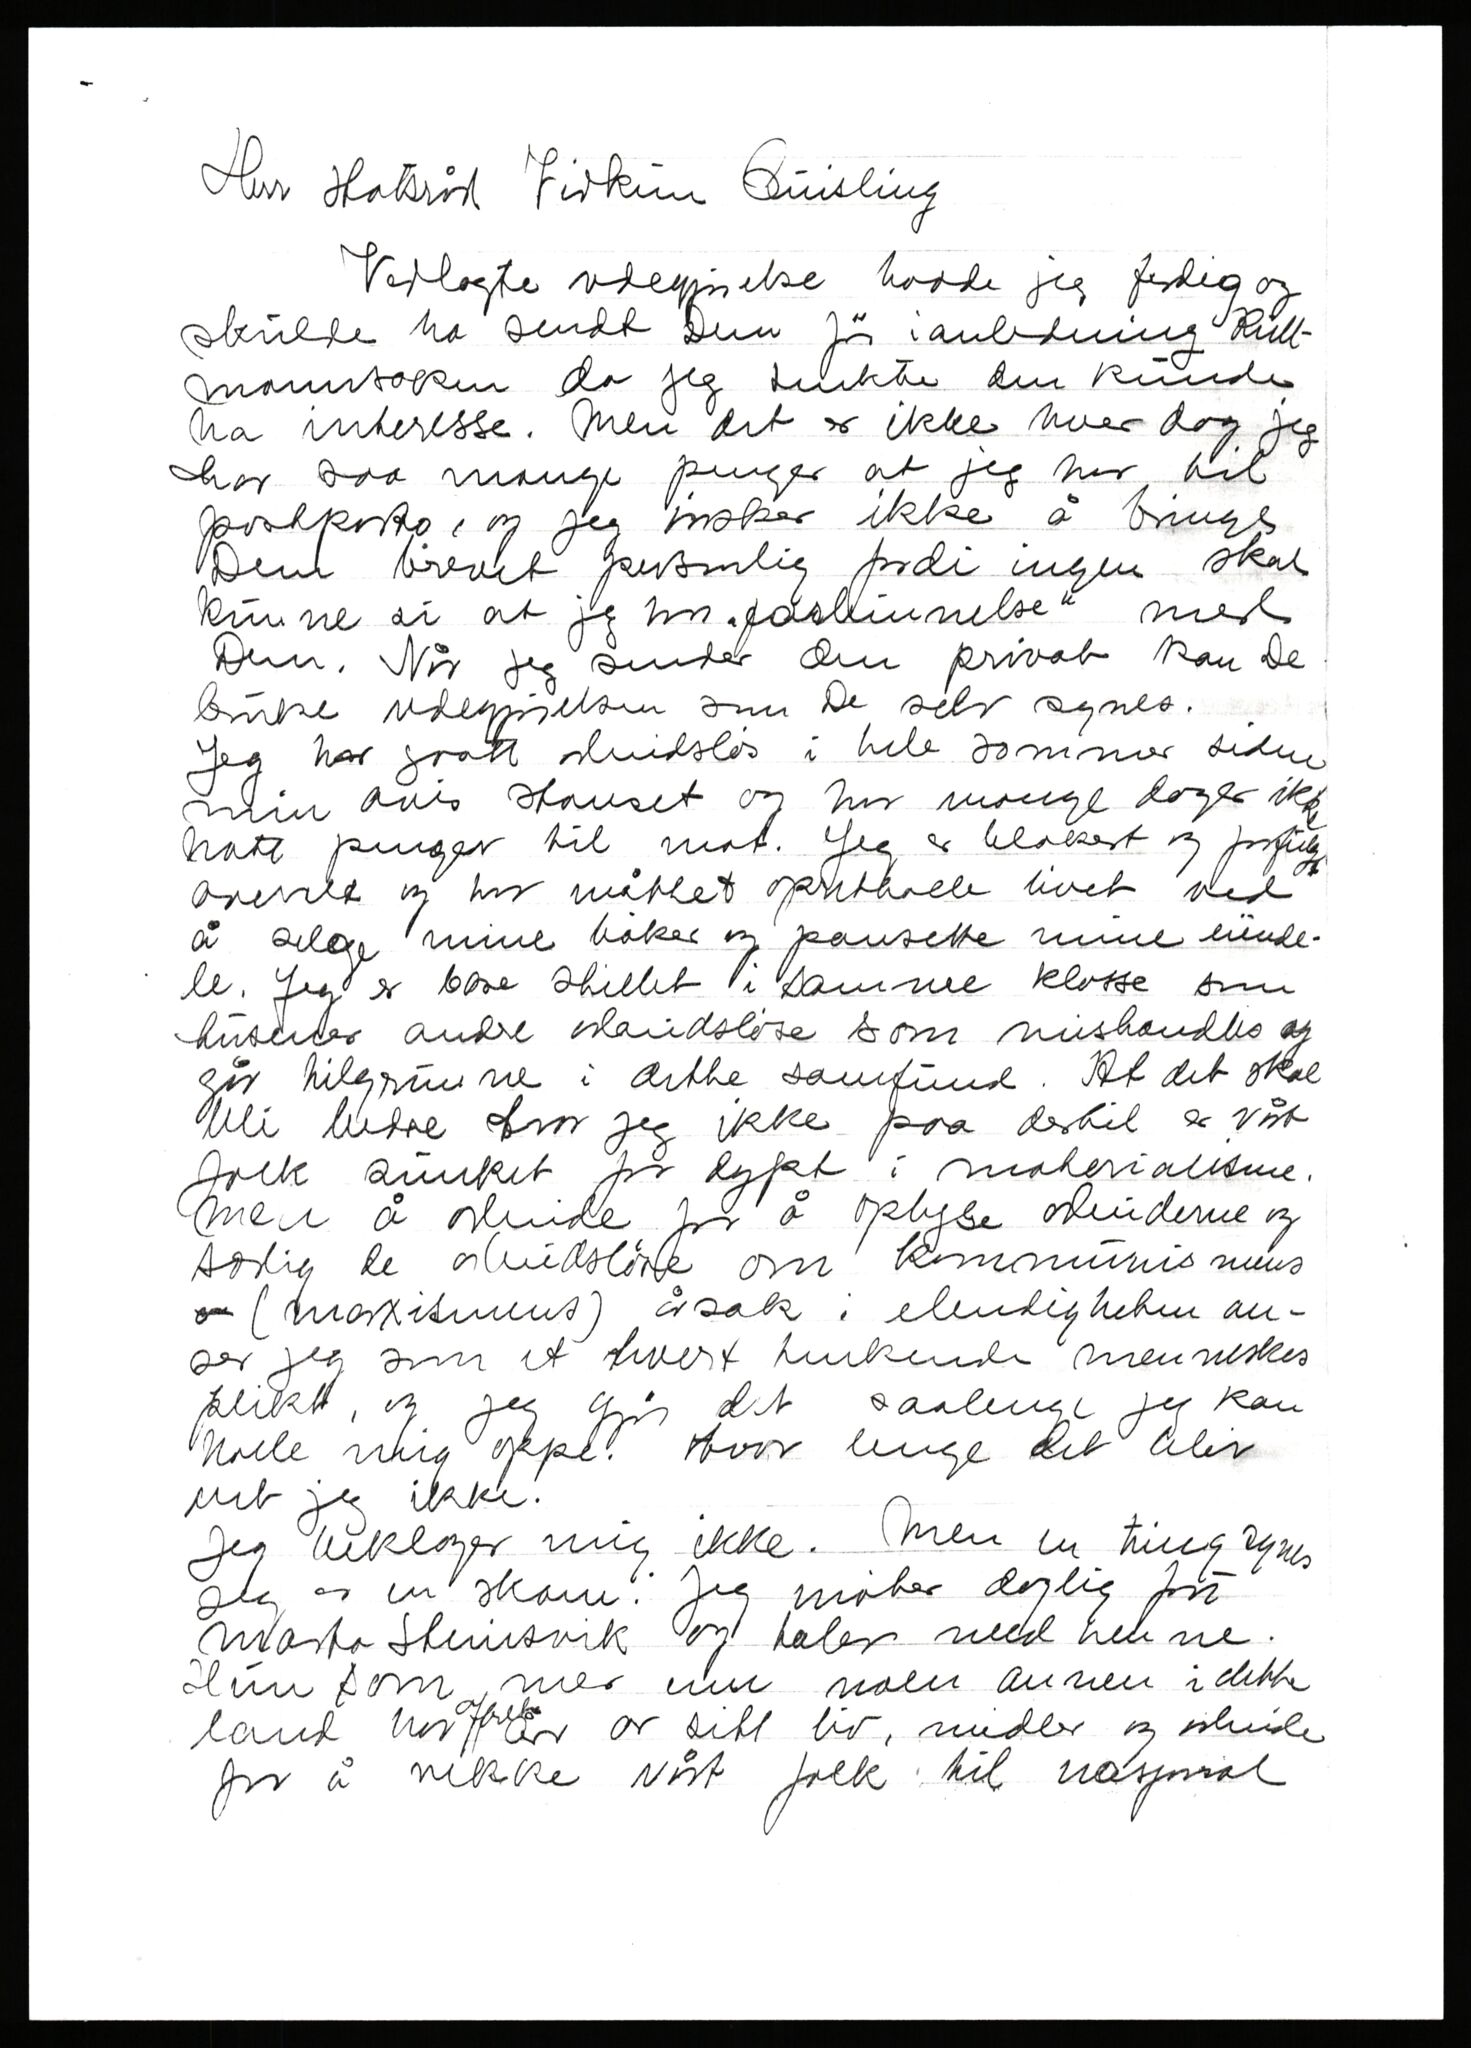 Herr Statsråd Vidkun Quisling
Vedlagte redegjørelse hadde jeg ferdig og
skulde ha sendt Dem før i anledning Kull-
mannsaken da jeg tenkte den kunde
ha interesse. Men det er ikke hver dag jeg
har saa mange penger at jeg har til
postporto, og jeg ønsker ikke å bringe
Dem brevet personlig fordi ingen skal
kunne si at jeg har „forbinnelse" med
Dem. Når jeg sender den privat kan De
bruke redegjørelsen som De selv synes.
Jeg har gaatt arbeidsløs i hele sommer siden
min avis stanset og har mange dager ikke
hatt penger til mat. Jeg er blokert og forfulgt
overalt og har måttet opretholde livet ved
å selge mine bøker og pansette mine eiende-
le. Jeg er bare stillet i samme klasse som
tusener andre arbeidsløse som mishandles og
går tilgrunne i dette samfund. At det skal
bli bedre tror jeg ikke paa dertil er vårt
folk sunket for dypt i materialisme.
Men å arbeide for å oplyse arbeiderne og
særlig de arbeidsløse om kommunismens
(marxismens) årsak i elendigheten an-
ser jeg som et hvert tenkende menneskes
plikt, og jeg gjør det saalenge jeg kan
holde mig oppe. Hvor lenge det blir
vet jeg ikke.
Jeg beklager mig ikke. Men en ting synes
jeg er en skam: Jeg møter daglig fru
Marta Steinsvik og taler med henne.
Hun som mer enn noen annen i dette
land har ofret av sitt liv, midler og arbeide
for å vekke vårt folk til nasjonal